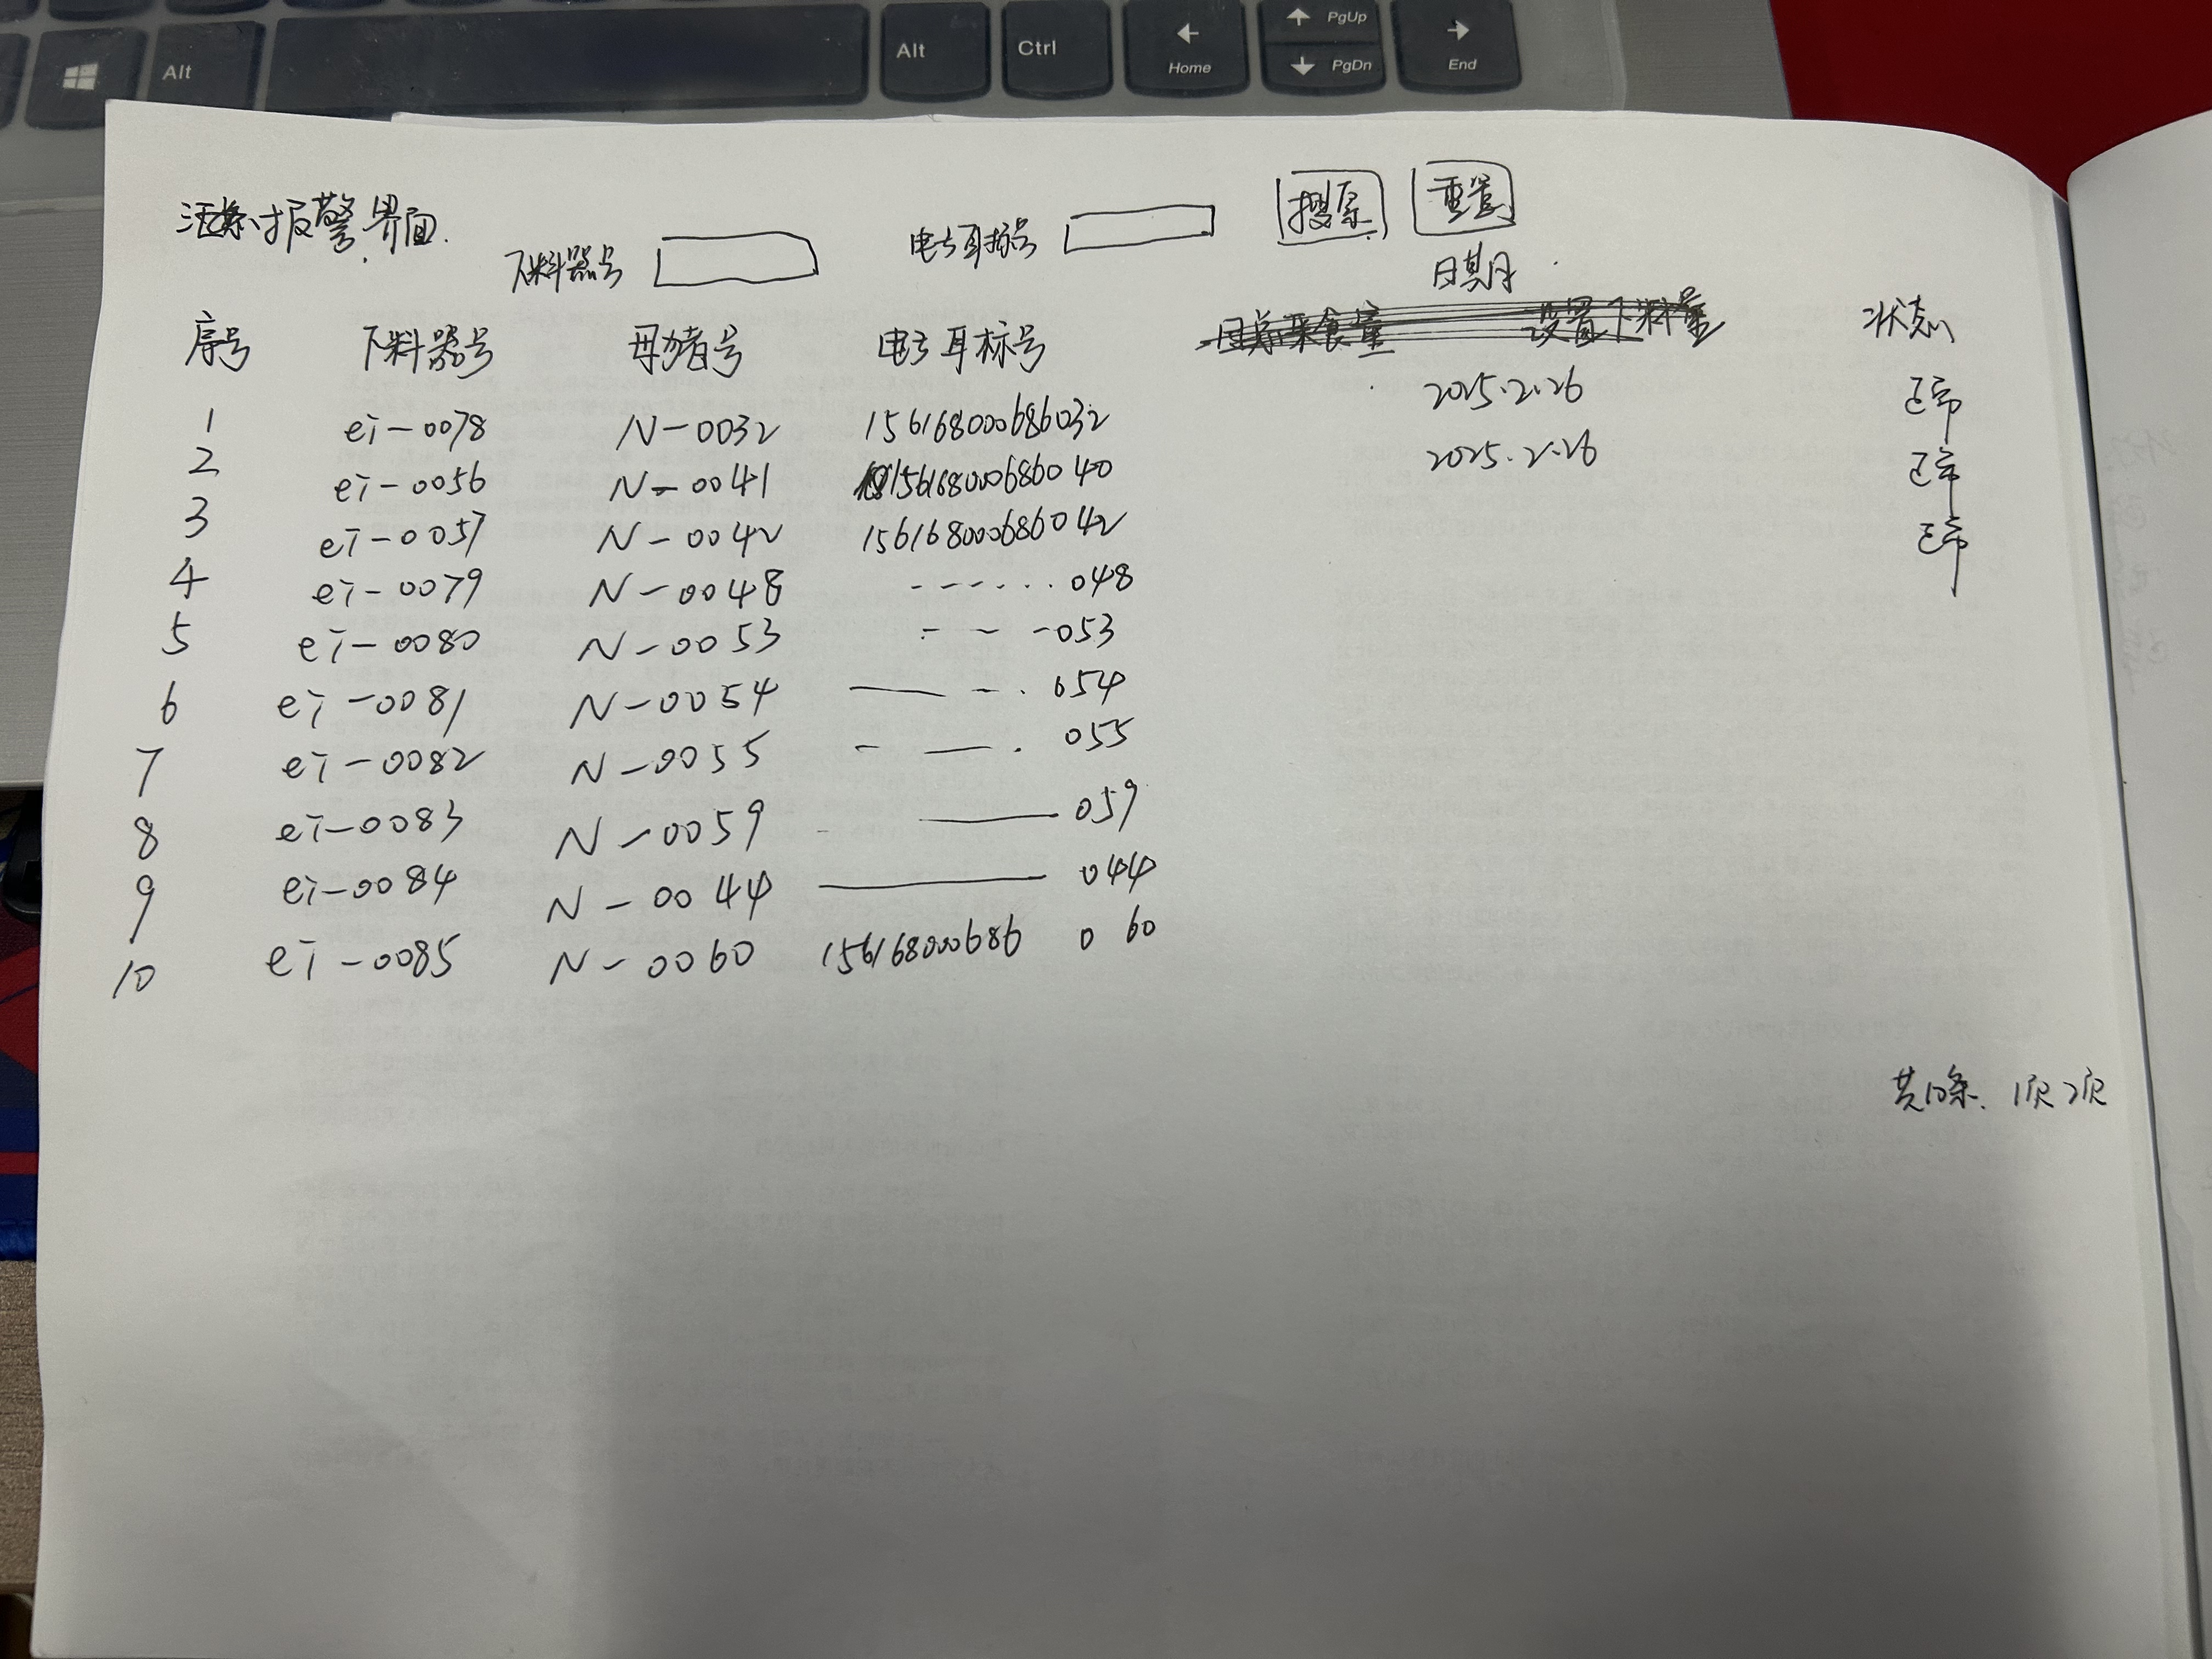 Alt Alt Ctrl ← Home ↑ PgUp ↓ PgDn → End
报警界面.
下料器号 电子耳标号 搜索 重置
日期
序号 下料器号 母猪号 电子耳标号 采食量 设置下料量 状态
1 ei-0078 N-0032 156168000686032 2025.2.26 正常
2 ei-0056 N-0041 156168000686040 2025.2.26 正常
3 ei-0057 N-0042 156168000686042 正常
4 ei-0079 N-0048 ------048
5 ei-0080 N-0053 ---053
6 ei-0081 N-0054 ——-.054
7 ei-0082 N-0055 -——.055
8 ei-0083 N-0059 ——059
9 ei-0084 N-0044 ——044
10 ei-0085 N-0060 156168000686 0 60
共10条. 1页2页